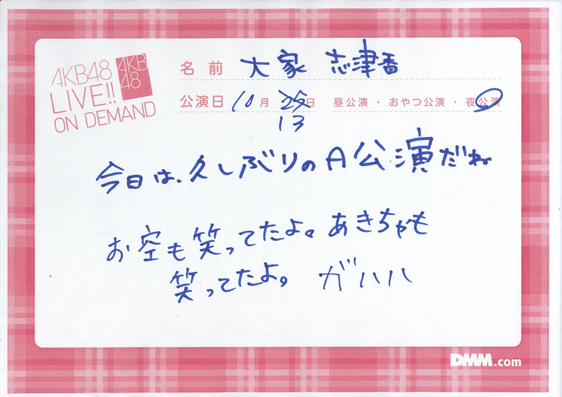 AKB48
LIVE!!
ON DEMAND
AKB
48
名前 大家 志津香
公演日 10月 25日 昼公演・おやつ公演・夜公演
13
今日は、久しぶりのA公演だね
お空も笑ってたよ。あきちゃも
笑ってたよ。 ガハハ
DMM.com